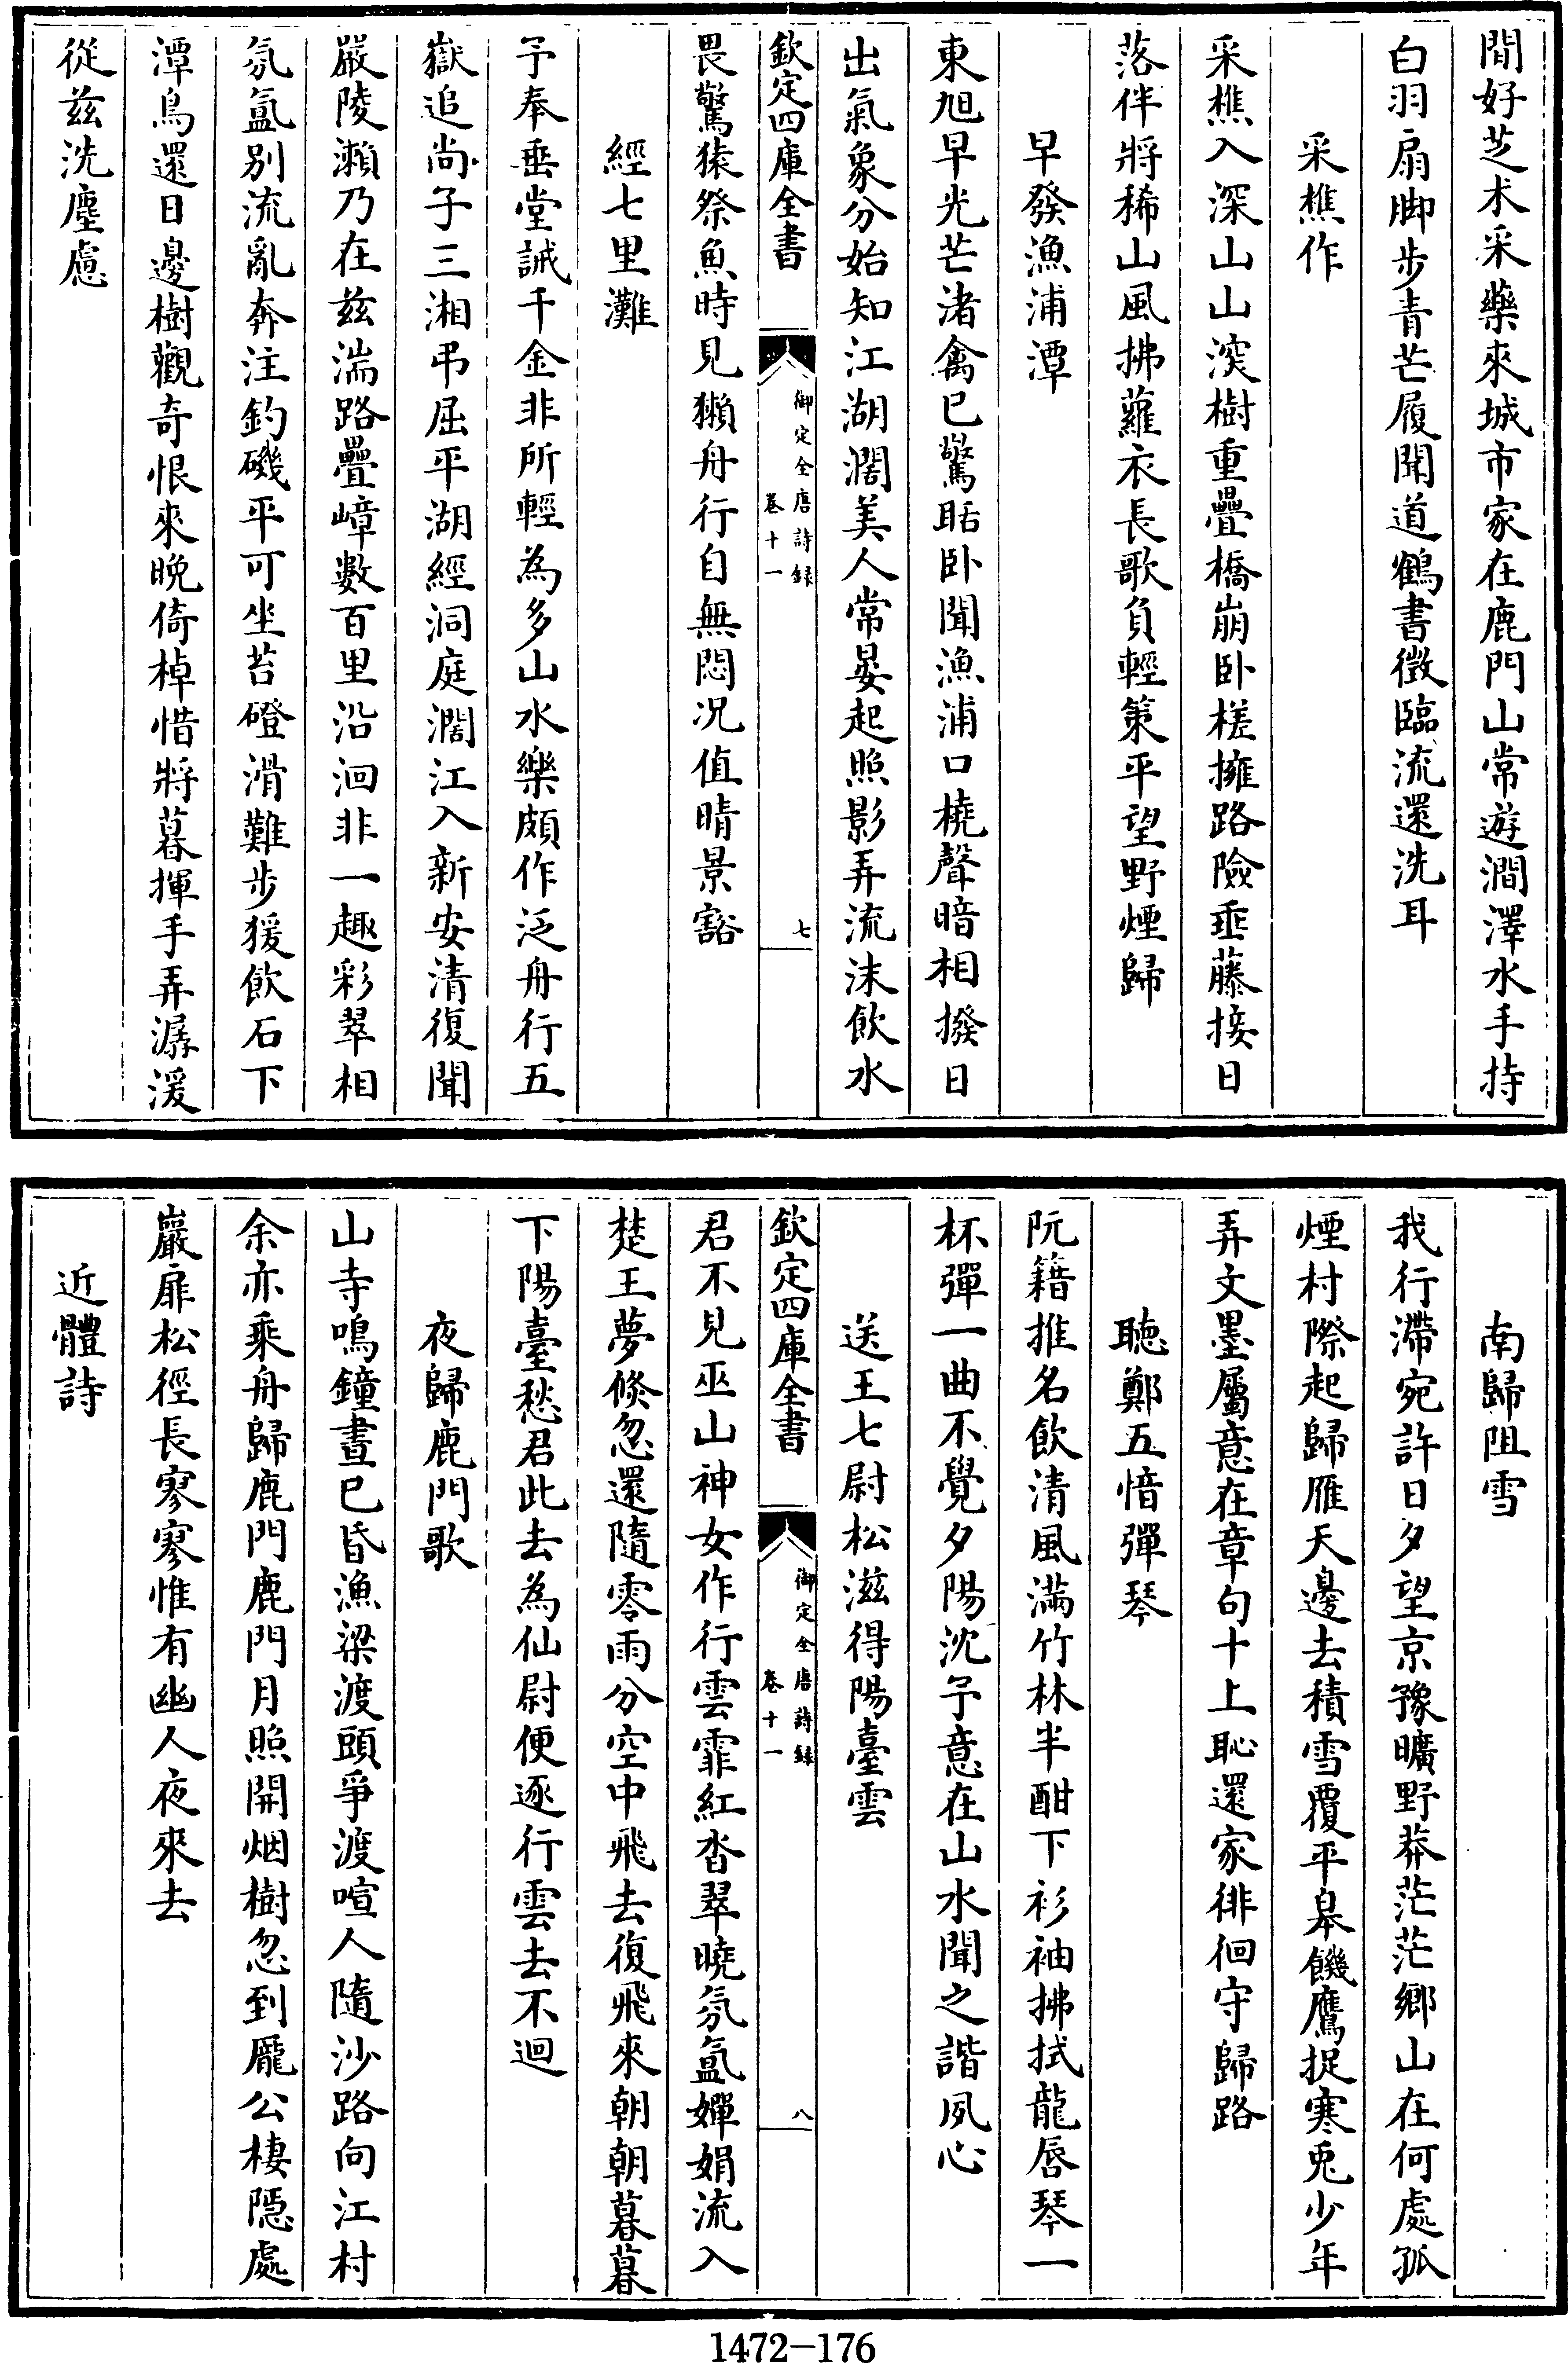 間好芝术采藥來城市家在鹿門山常遊澗澤水手持
白羽扇脚步青芒履聞道鶴書徵臨流還洗耳
采樵作
采樵入深山山深樹重疊橋崩卧槎擁路險垂藤接日
落伴將稀山風拂蘿衣長歌負輕策平望野煙歸
早發漁浦潭
東旭早光芒渚禽已驚聒卧聞漁浦口橈聲暗相撥日
出氣象分始知江湖濶美人常晏起照影弄流沫飲水
欽定四庫全書
御定全唐詩録
卷十一
七
畏驚猿祭魚時見獺舟行自無悶况值晴景豁
經七里灘
予奉垂堂誡千金非所輕為多山水樂頗作泛舟行五
嶽追尚子三湘弔屈平湖經洞庭濶江入新安清復聞
嚴陵瀨乃在兹湍路疊嶂數百里沿洄非一趣彩翠相
氛氲别流亂奔注釣磯平可坐苔磴滑難步猨飲石下
潭鳥還日邊樹觀奇恨來晚倚棹惜將暮揮手弄潺湲
從兹洗塵慮
南歸阻雪
我行滯宛許日夕望京豫曠野莽茫茫鄉山在何處孤
煙村際起歸雁天邊去積雪覆平皋饑鷹捉寒兎少年
弄文墨屬意在章句十上恥還家徘徊守歸路
聽鄭五愔彈琴
阮籍推名飲清風滿竹林半酣下衫袖拂拭龍唇琴一
杯彈一曲不覺夕陽沈予意在山水聞之諧夙心
送王七尉松滋得陽臺雲
欽定四庫全書
御定全唐詩録
卷十一
八
君不見巫山神女作行雲霏紅沓翠曉氛氲嬋娟流入
楚王夢倐忽還隨零雨分空中飛去復飛來朝朝暮暮
下陽臺愁君此去為仙尉便逐行雲去不迴
夜歸鹿門歌
山寺鳴鐘晝已昏漁梁渡頭爭渡喧人隨沙路向江村
余亦乘舟歸鹿門鹿門月照開烟樹忽到龐公棲隱處
巖扉松徑長寥寥惟有幽人夜來去
近體詩
1472-176